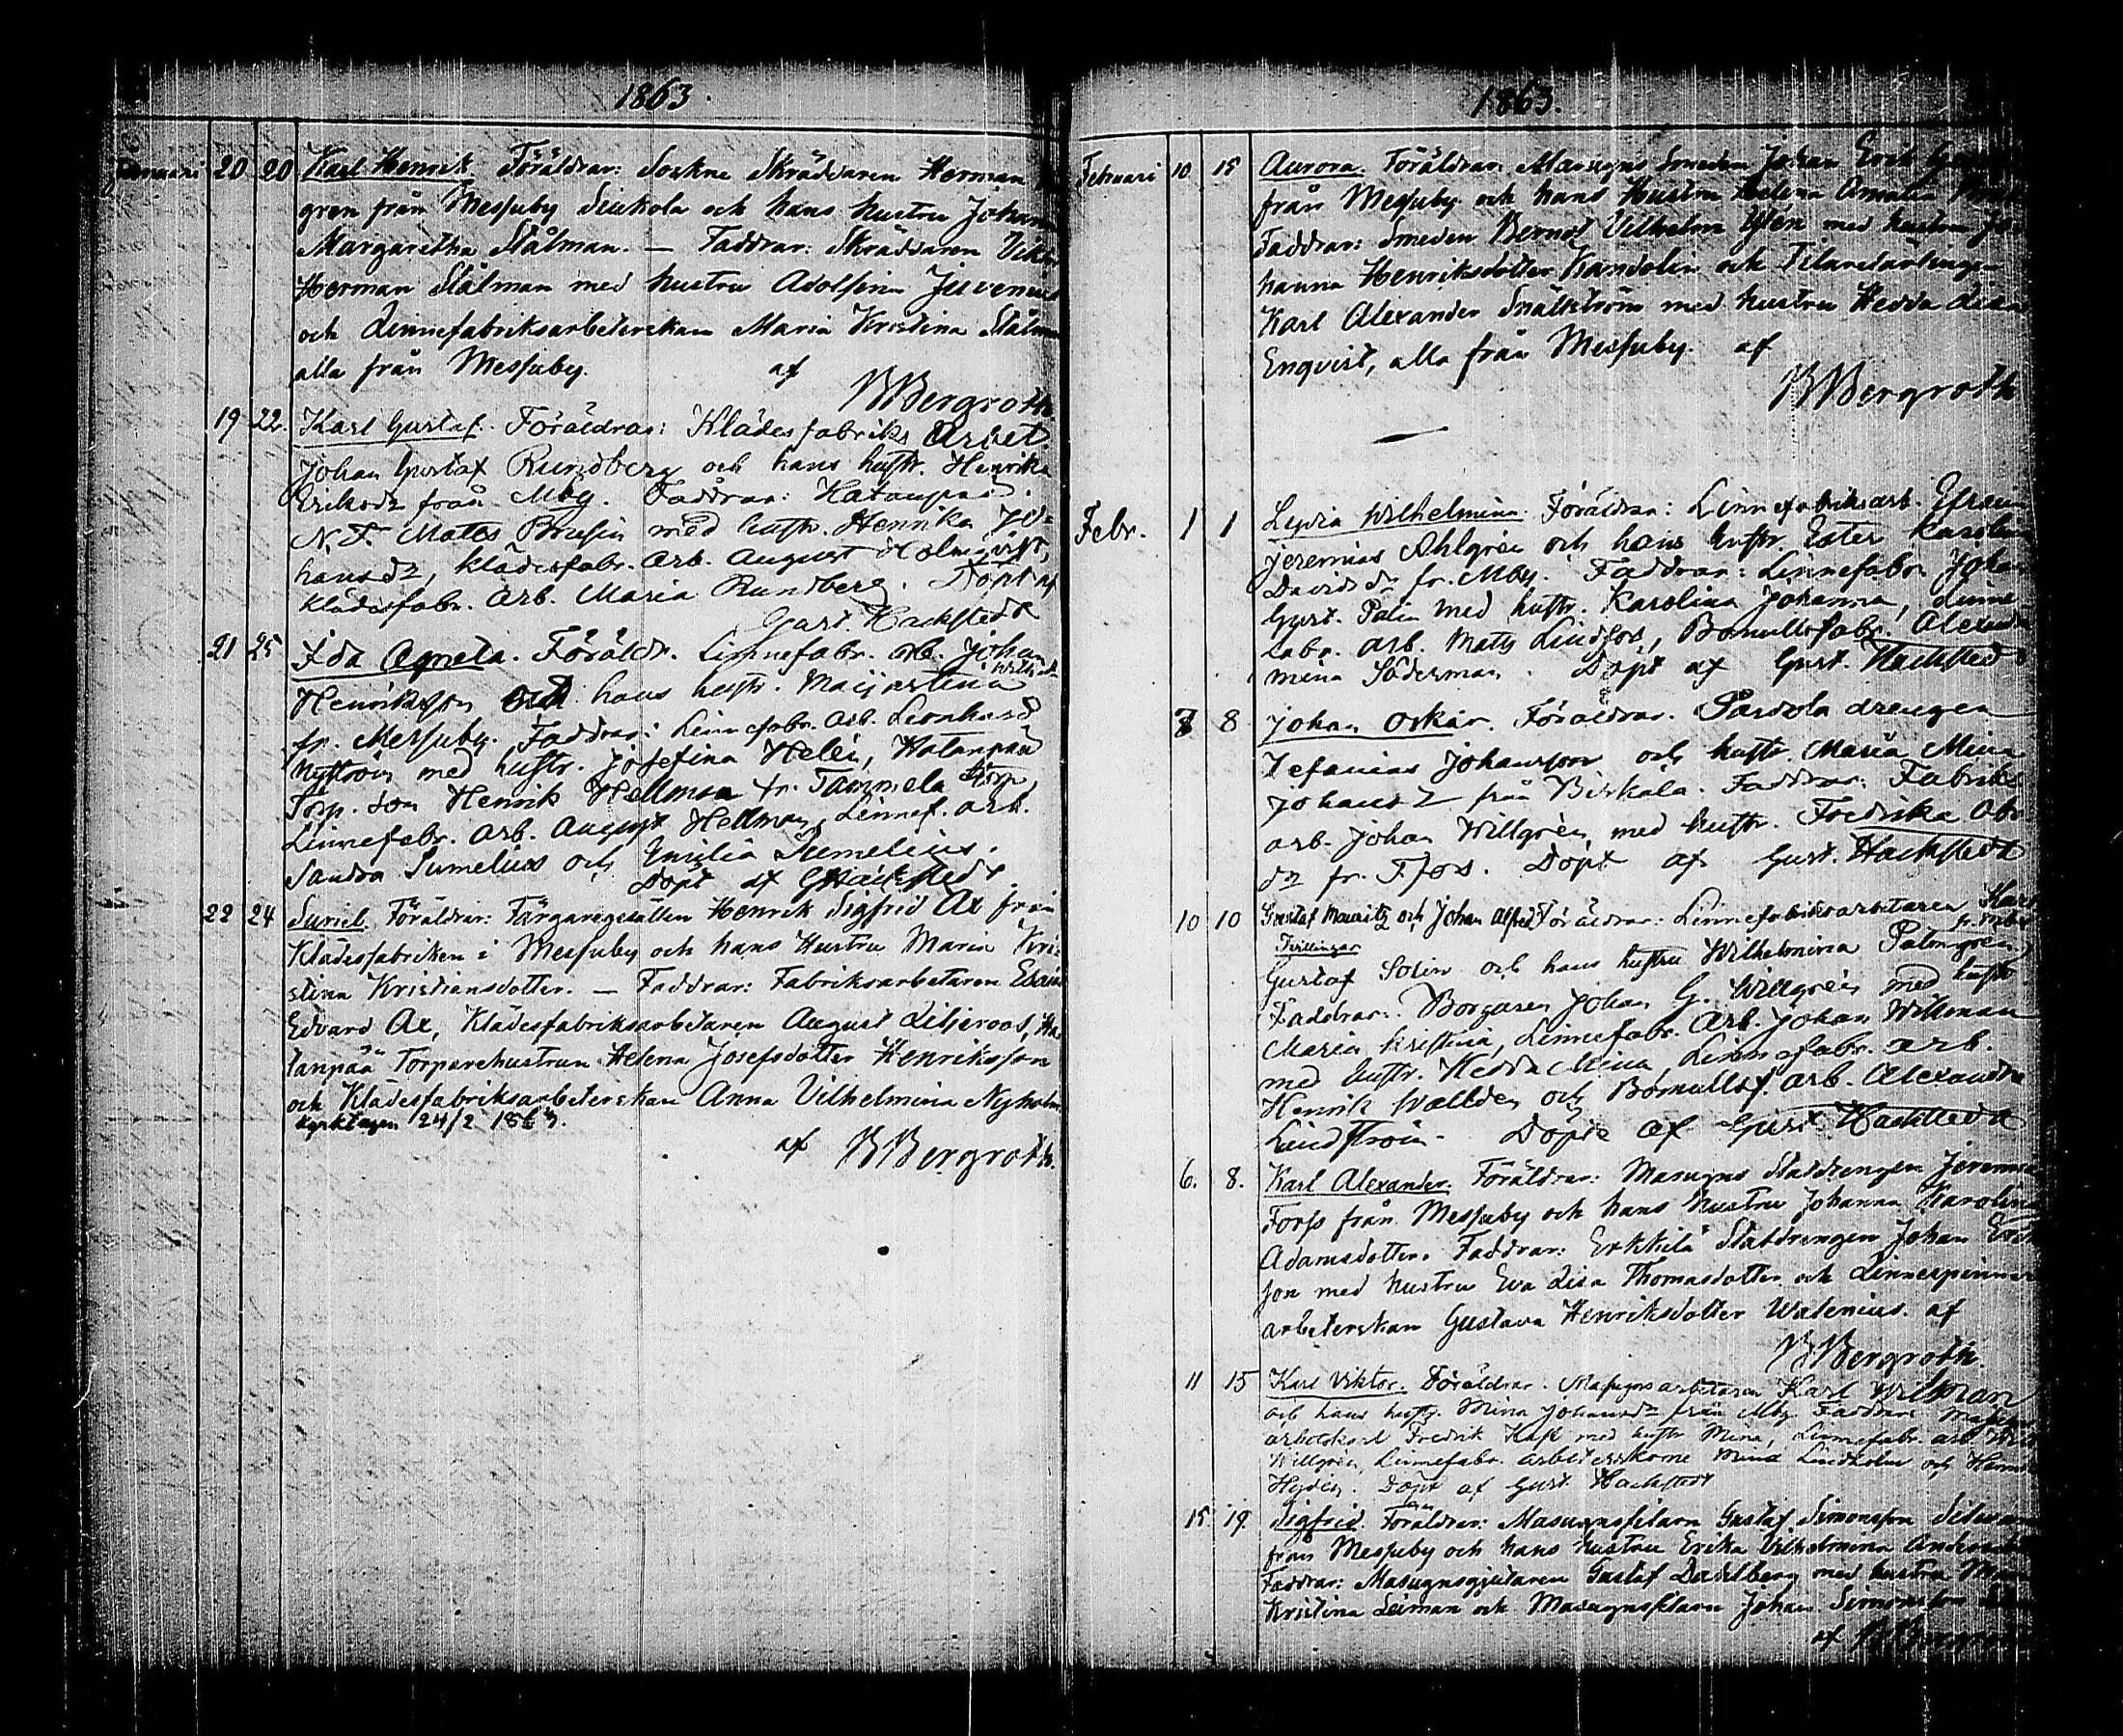 1863.
Januari 20 20 Karl Henrik. Föräldrar: Sockne Skräddaren Herman
gren från Messuby Siukola och hans hustru Johan
Margaretha Stålman. — Faddrar: Skräddaren Vik
Herman Stålman med hustru Adolfina Juvenius
och Linnefabriksarbeterskan Maria Kristina Stålman
alla från Messuby. af
BBergroth.
19 22. Karl Gustaf. Föräldrar: Klädesfabriks Arbet.
Johan Gustaf Rundberg och hans hustr. Henrika
Eriksdr från Mby. Faddrar: Hatanpää
N. F. Matts Brusin med hustr. Henrika Jo=
hansdr, klädesfabr. arb. August Holmqvist,
Klädesfabr. Arb. Maria Rundberg. Döpt af
Gust. Hackstedt
21 25 Ida Agneta. Föräldr. Linnefabr. arb. Johan
Henriksson och hans hustr. Maja Stina
fr. Messuby. Faddrar: Linnefabr. arb. Leonhard
med hustr. Josefina Helén, Hatanpää
Torp. son Henrik Hellman fr. Tammela
Linnefabr. arb. August Hellman, Linnef. arb.
Sandra Sumelius och Emilia Sumelius.
Döpt af GHackstedt
22 24 Suriel. Föräldrar: Färgaregesällen Henrik Sigfrid Ax från
Klädesfabriken i Messuby och hans Hustru Maria Kri=
stina Kristiansdotter. — Faddrar: Fabriksarbetaren Esaias
Edvard Ax, Klädesfabriksarbetaren August Liljeroos, Ha
tanpää Torparehustrun Helena Josefsdotter Henriksson
och Klädesfabriksarbeterskan Anna Vilhelmina Nyholm
Kyrktagen 24/2 1863.
af BBergroth.
1863.
Februari 10 15 Aurora. Föräldrar: Masugns Smeden Johan Erik
från Messuby och hans Hustru Helena Amalia
Faddrar: Smeden Berndt Vilhelm Ylen med hustru Jo
hanna Henriksdotter Kandolin och Filarelärlingen
Karl Alexander Snällström med hustru Hedda Lisa
Enqvist, alla från Messuby. af
BBergroth
Febr. 1 1 Lydia Wilhelmina. Föräldrar: Linnefabriksarb. Efraim
Jeremias Ahlgrén och hans hustr. Ester Karolina
Davidsdr fr. Mby. Faddrar: Linnefabr. Johan
Gust. Palin med hustr. Karolina Johanna, Linne
fabr. arb. Matts Lindfors, Bomullsfabr. Alexandra
mina Söderman. Döpt af Gust. Hackstedt
7 8 Johan Oskar. Föräldrar. Parsola drengen
Zefanias Johansson och hustr. Maria Mina
Johansdr från Birkala. Faddrar: Fabriks
arb. Johan Willgrén med hustr. Fredrika Abr
dr fr. T.fors. Döpt af Gust. Hackstedt
10 10 Gustaf Mauritz och Johan Alfred Föräldrar: Linnefabriksarbetaren Karl
Tvillingar fr. Mby
Gustaf Solin och hans hustru Wilhelmina Palmgrén
Faddrar: Borgaren Johan G. Willgrén med hustr.
Maria Kristina, Linnefabr. Arb. Johan Wikman
med hustr. Hedda Mina, Linnefabr. arb.
Henrik Walldén och Bomullsf. arb. Alexandra
Lindström. Döpte af Gust. Hackstedt
6. 8. Karl Alexander. Föräldrar: Masugns Stadrengen Jeremias
Forss från Messuby och hans hustru Johanna Karolina
Adamsdotter. Faddrar: Erkkilä Statdrengen Johan Erik
son med hustru Eva Lisa Thomasdotter och Linnespinneri
arbeterskan Gustava Henriksdotter Walenius. af
BBergroth.
11 15 Karl Viktor. Föräldrar. Masugnsarbetaren Karl Willman
och hans hustr. Mina Johansdr från Mby Faddrar Masugns
arbetskarl Fredrik med hustr. Mina, Linnefabr. arb.
Willgrén, Linnefabr. arbeterskorne Mina Lindholm och
Hydén. Döpt af Gust. Hackstedt
15 19. Sigfrid. Föräldrar: Masugnsfilarn Gustaf Simonsson
från Messuby och hans hustru Erika Vilhelmina
Faddrar: Masugnsgjutaren Gustaf Dahlberg med hustru
Kristina Leiman och Masugnsfilarn Johan Simonsson
af BBergroth